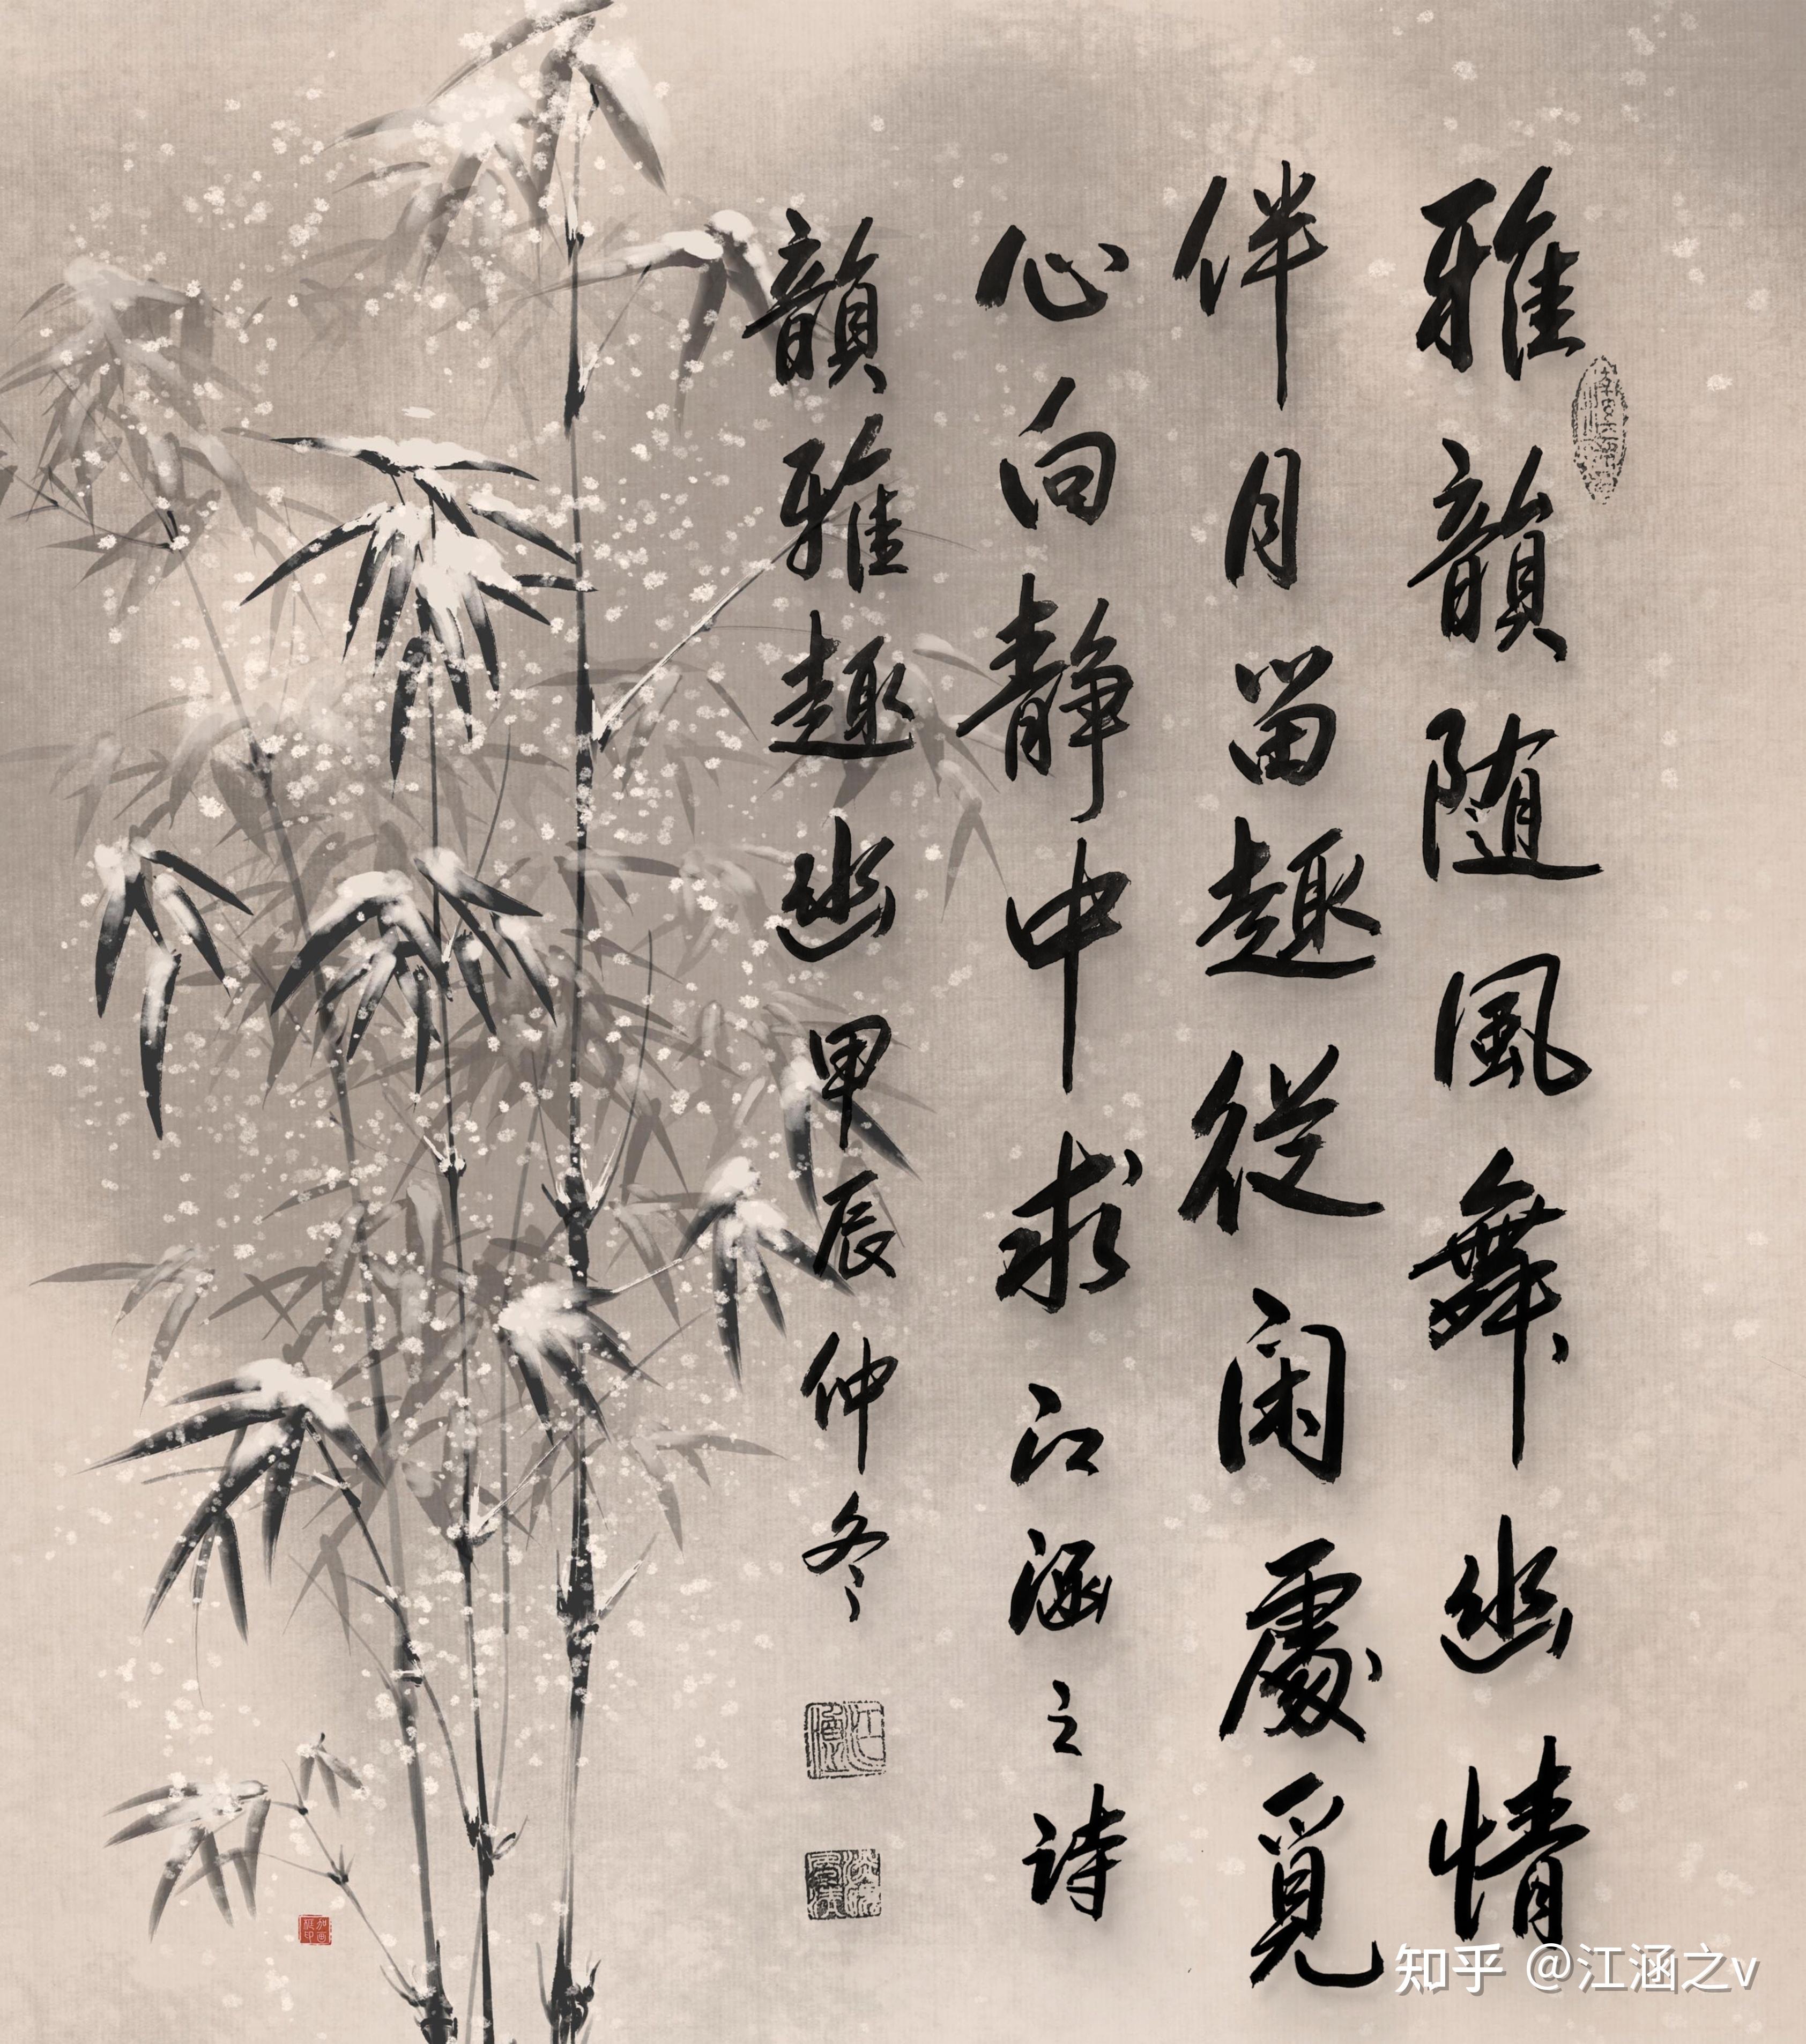 雅韻随風舞幽情
伴月留趣從闲處覓
心向静中求江涵之诗
韻雅趣幽甲辰仲冬
知乎 @江涵之v